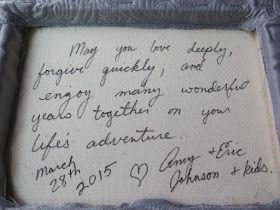 May you love deeply,
forgive quickly, and
enjoy many wonderful
years together on your
life's adventure.
March
28th
2015 ♡ Amy + Eric
Johnson + kids.